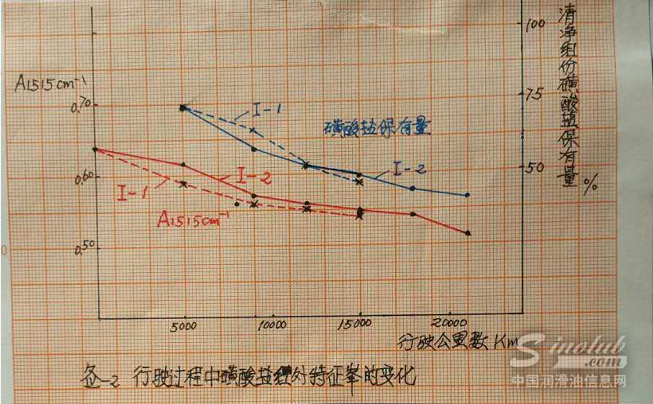 A1515cm⁻¹
0,70
0,60
0,50
100
75
50
清净组份磺酸盐保有量 %
I-1
磺酸盐保有量
I-2
I-2
I-1
A1515cm⁻¹
5000
10000
15000
20000
行驶公里数 Km
-2 行驶过程中磺酸盐红外特征峯的变化
Sinolub.com
中国润滑油信息网